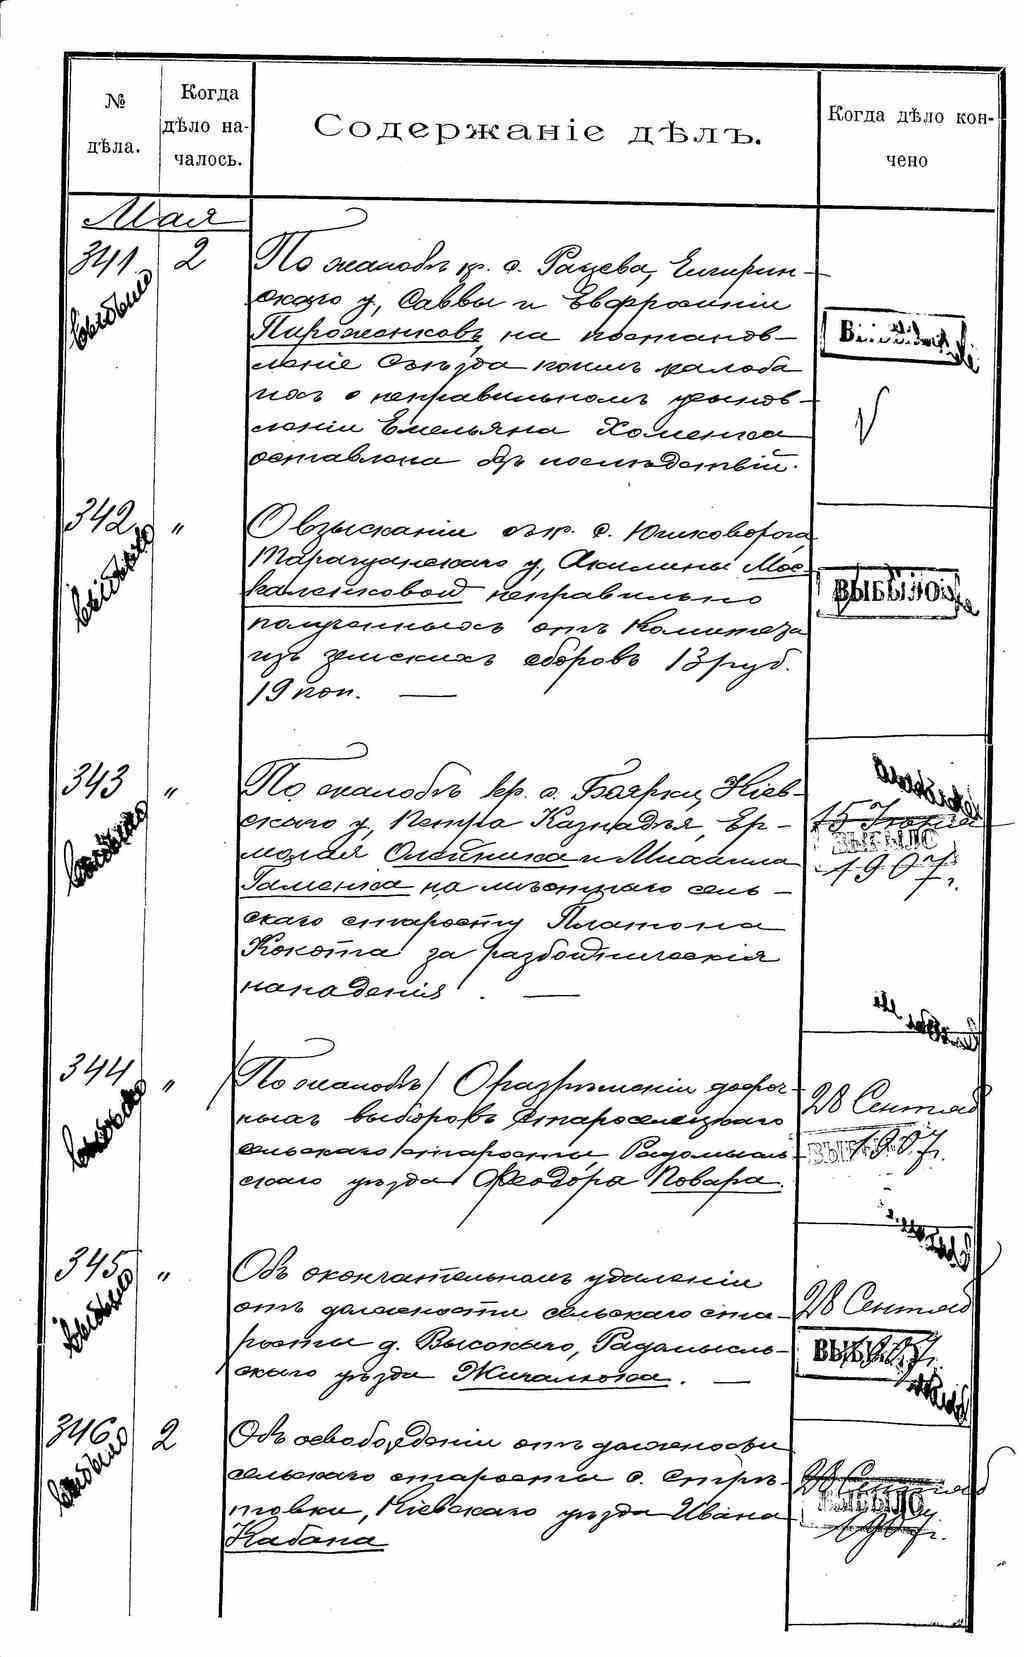 № дѣла.
Когда дѣло на-
чалось.
Содержаніе дѣлъ.
Когда дѣло кон-
чено
Мая
341 2 По жалобѣ кр. с. Рацева, Чигирин-
скаго у, Саввы и Евфросиніи
Пироженковъ, на постанов-
леніе Съѣзда коимъ жалоба
ихъ о неправильномъ усынов-
леніи Емельяна Хоменка
оставлена безъ послѣдствій.
выбыло
342 " О взысканіи съ кр. с. Юшковорога
Таращанскаго у, Акилины Мос-
каленковой неправильно
полученныхъ отъ Комитета
изъ земскихъ сборовъ 13 руб.
19 коп. —
выбыло
ВЫБЫЛО
343 " По жалобѣ кр. с. Боярки, Кіев-
скаго у, Петра Казнадѣя, Ер-
молая Олейника и Михаила
Гаменка на мѣстнаго сель-
скаго старосту Платона
Кокота за разбойническія
нападенія. —
выбыло
15 Іюня
ВЫБЫЛО
1907 г.
344 " /По жалобѣ/ О разрѣшеніи досроч-
ныхъ выборовъ Староселецкаго
сельскаго старосты Радомысль-
скаго уѣзда Феодора Повара.
выбыло
28 Сентяб
1907 г.
345 " Объ окончательномъ удаленіи
отъ должности сельскаго ста-
росты д. Высокаго, Радомысль-
скаго уѣзда Жигалюка. —
выбыло
28 Сентяб
1907 г.
346 2 Объ освобожденіи отъ должности
сельскаго старосты с. Стрѣ-
товки, Кіевскаго уѣзда Ивана
Кабана
выбыло
28 Сентяб
ВЫБЫЛО
1907 г.